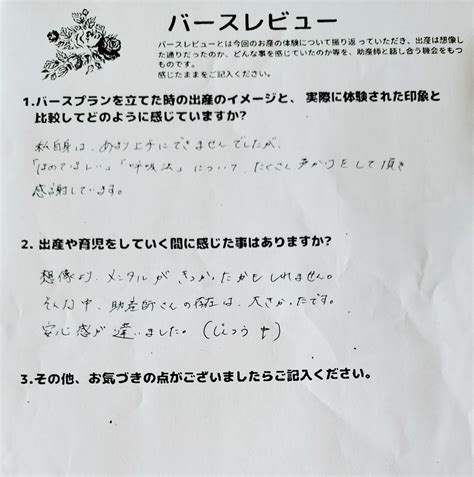 バースレビュー
バースレビューとは今回のお産の体験について振り返っていただき、出産は想像し
た通りだったのか、どんな事を感じていたのか等を、助産師と話し合う機会をもつ
ものです。
感じたままをご記入ください。
1.バースプランを立てた時の出産のイメージと、実際に体験された印象と
比較してどのように感じていますか?
私自身は、あまり上手にできませんでしたが、
「ほめてほしい」「呼吸法」について、たくさん声かけをして頂き
感謝しています。
2. 出産や育児をしていく間に感じた事はありますか?
想像より、メンタルが きつかったかもしれません。
そんな中、助産師さんの存在は、大きかったです。
安心感が違いました。(じんつう中)
3.その他、お気づきの点がございましたらご記入ください。